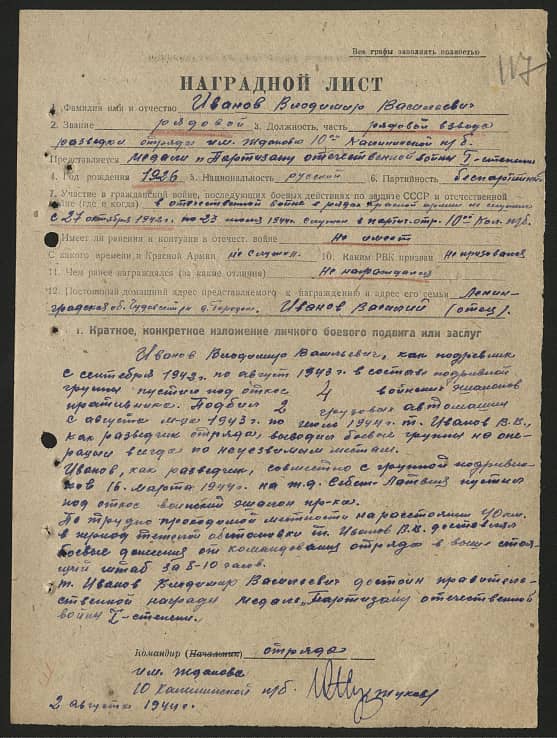 Все графы заполнять полностью
117
НАГРАДНОЙ ЛИСТ
1. Фамилия имя и отчество Иванов Владимир Васильевич
2. Звание рядовой 3. Должность, часть рядовой взвода
разведки отряда им. Жданова 10ой Калининской п/б.
Представляется медали „Партизану отечественной войны I-степени
4. Год рождения 1926 5. Национальность русский 6. Партийность беспартийный
7. Участие в гражданской войне, последующих боевых действиях по защите СССР и отечественной
войне (где и когда) в отечественной войне в рядах Красной армии не служил
с 27 октября 1942г. по 23 июля 1944г. служил в партиз. отр. 10ой Кал. п/б.
8. Имеет ли ранения и контузии в отечест. войне не имеет
9. С какого времени в Красной Армии не служил. 10. Каким РВК призван не призывался
11. Чем ранее награждался (за какие отличия) не награждался
12. Постоянный домашний адрес представляемого к награждению и адрес его семьи Ленин-
градская об. Чудовский р. д. Иванов Василий (отец).
I. Краткое, конкретное изложение личного боевого подвига или заслуг
Иванов Владимир Васильевич, как подрывник
с сентября 1942г. по август 1943г. в составе подрывной
группы пустил под откос 4 воинских эшелонов
противника. Подбил 2 грузовых автомашин
с августа м-ца 1943г. по июль 1944г. т. Иванов В.В.,
как разведчик отряда, выводил боевые группы на опе-
рации всегда по неуязвимым местам.
Иванов, как разведчик, совместно с группой подрывни-
ков 16. марта 1944г. на ж.д. Себеж-Латвия пустил
под откос воинский эшелон пр-ка.
По трудно проходимой местности на расстоянии 40 км.
в период тяжелой обстановки т. Иванов В.В. доставлял
боевые донесения от командования отряда в выше стоя-
щий штаб за 8-10 часов.
т. Иванов Владимир Васильевич достоин правитель-
ственной награды медаль „Партизану отечественной
войны I-степени.
Командир (Начальник) отряда
им. Жданова
10 Калининской п/б. Жуков
2 августа 1944г.